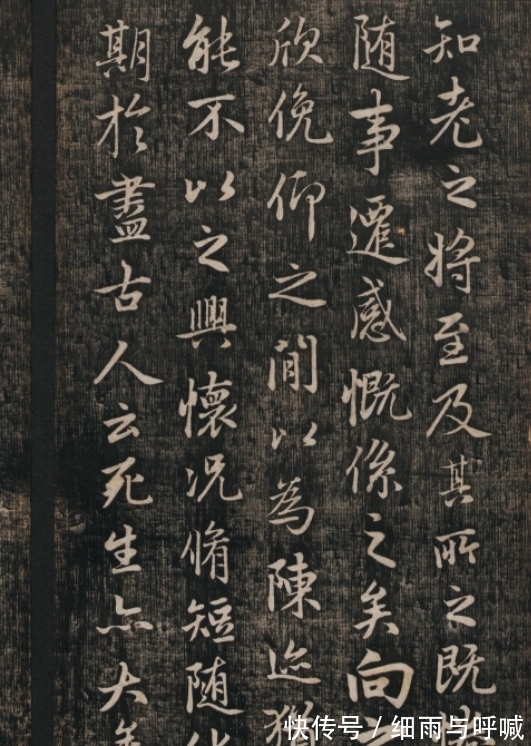 知老之将至及其所之既
随事遷感慨係之矣向之
欣俛仰之間以為陳迹猶
能不以之興懷况脩短随化
期於盡古人云死生亦大矣
快传号 / 细雨与呼喊